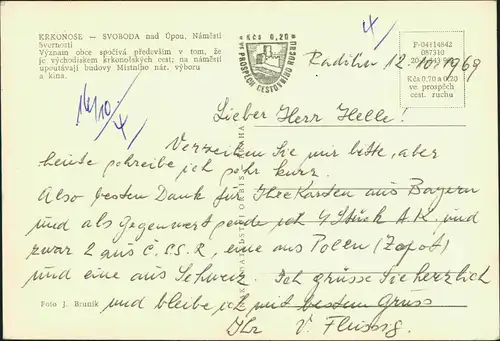 KRKONOŠE - SVOBODA nad Úpou, Náměstí
Svornosti
Význam obce spočívá především v tom, že
je východiskem krkonošských cest; na náměstí
upoutávají budovy Místního nár. výboru
a kina.
Kčs 0,20
VE PROSPĚCH CESTOVNÍHO RUCHU
F-04114842
087310
Kčs 0,70 a 0,20
ve prospěch
cest. ruchu
4/
Radiču 12.10.1969
14/10.
4/
Lieber Herr Helle!
Verzeihen Sie mir bitte, aber
heute schreibe ich sehr kurz.
Also besten Dank für Ihre Karten aus Bayern
und als Gegenwert sende ich 4 Stück A.K. und
zwar 2 aus Č.S.S.R, eine aus Polen (Zopot)
und eine aus Schweiz. Ich grüsse Sie herzlich
und bleibe ich mit bestem Gruss
Ihr V. Flussig.
Foto J. Bruník
ORBIS PRAHA